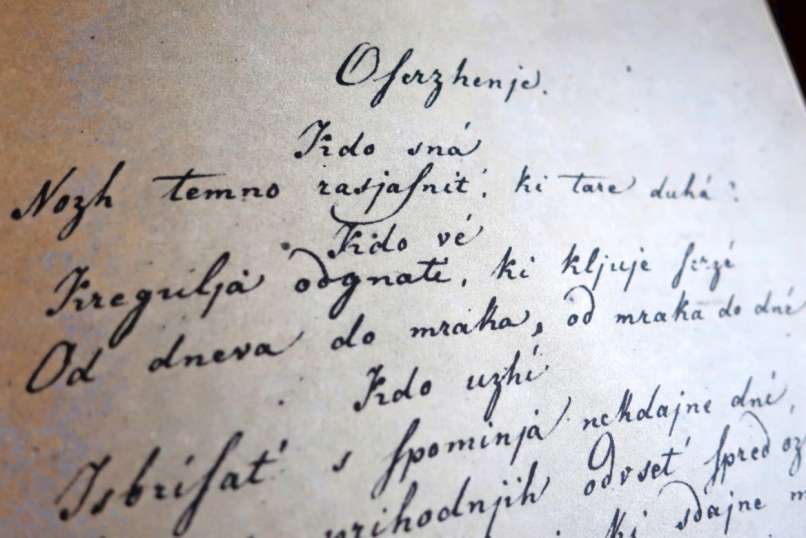 Oſerzhenje.
Kdo sná
Nozh temno rasjaſnit', ki tare duhá?
Kdo vé
Kregulja odgnati, ki kljuje ſerzé
Od dneva do mraka, od mraka do dné
Kdo uzhí
Isbriſat' s ſpominja nekdajne dní,
prihodnjih odvset' ſpred oz
ki sdajne m